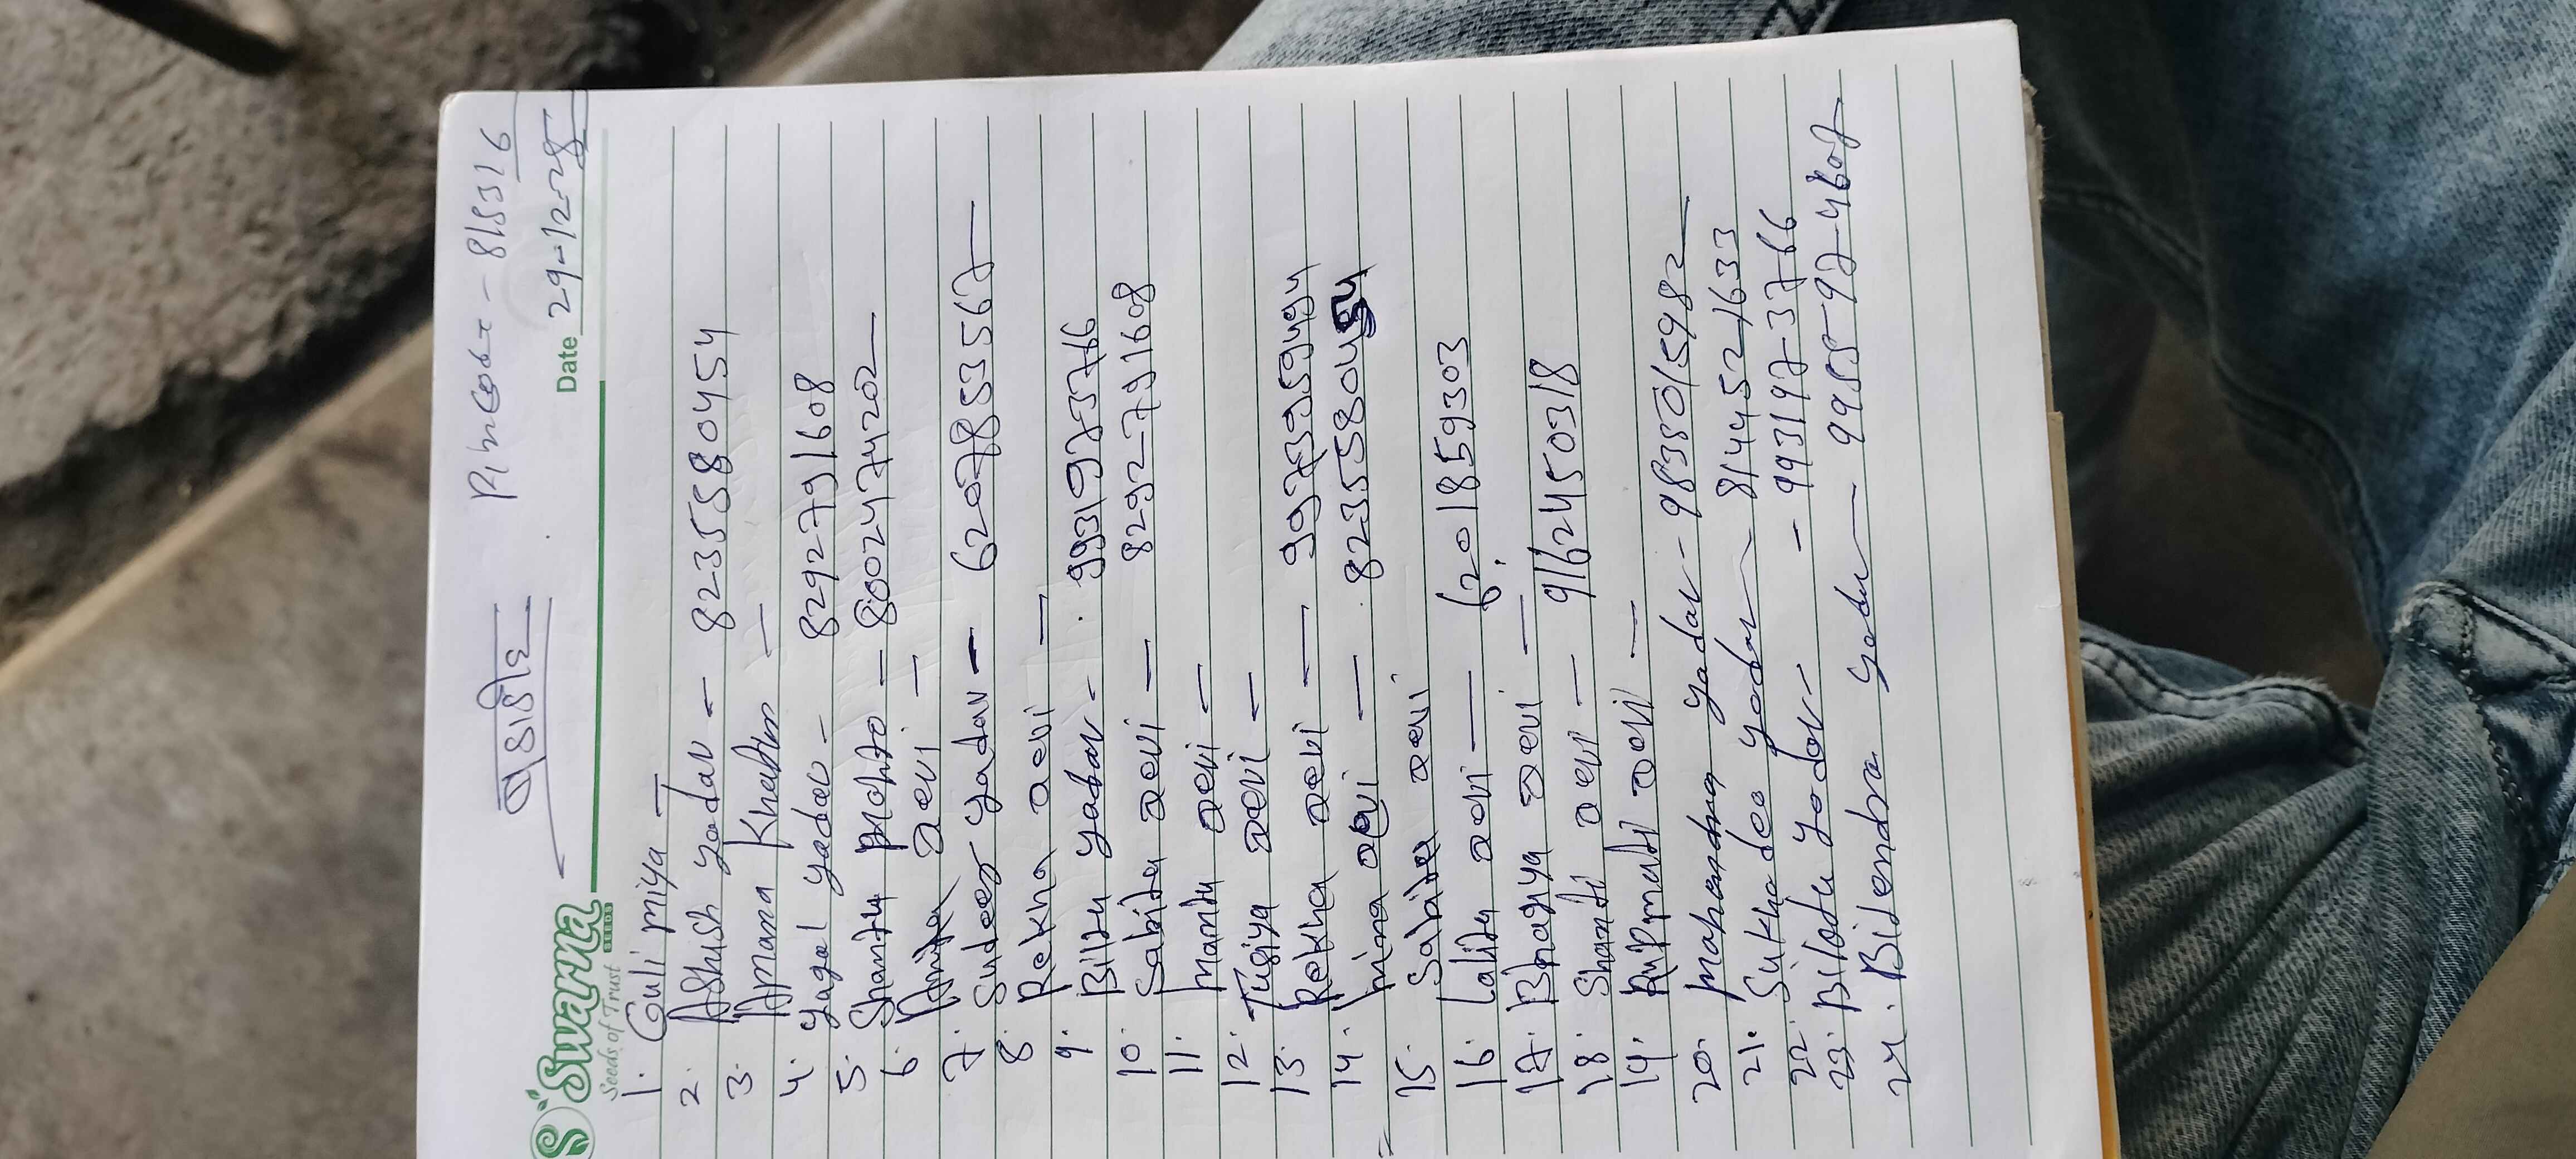 Pincode - 815316
पुरनीडीह
Swarna
SEEDS
Seeds of Trust
Date 29-12-25
1. Guli miya —
2. Ashush yadav — 8235580454
3. Amana Khatun —
4. Yagal yadav - 8292791608
5. Shanity Mahto - 8002474202
6. Anita Devi —
7. Sudeer yadav — 6207853567
8. Rekha Devi —
9. Billu yadav - 9931973766
10. Sabita Devi — 8292791608
11. Manju Devi —
12. Tugiya Devi —
13. Rekha Devi — 9973959494
14. Mina Devi — 8235580454
15. Sabita Devi
16. Lalita Devi — 6201859303
17. Bhagya Devi —
18. Shanti Devi — 9162450318
19. Rupmati Devi —
20. Mahendra Yadav - 9835015982
21. Sukhadeo yadav - 8144521633
22. - 9931973766
23. Bilodu yadav - 9955974607
24. Bidendra Yadav